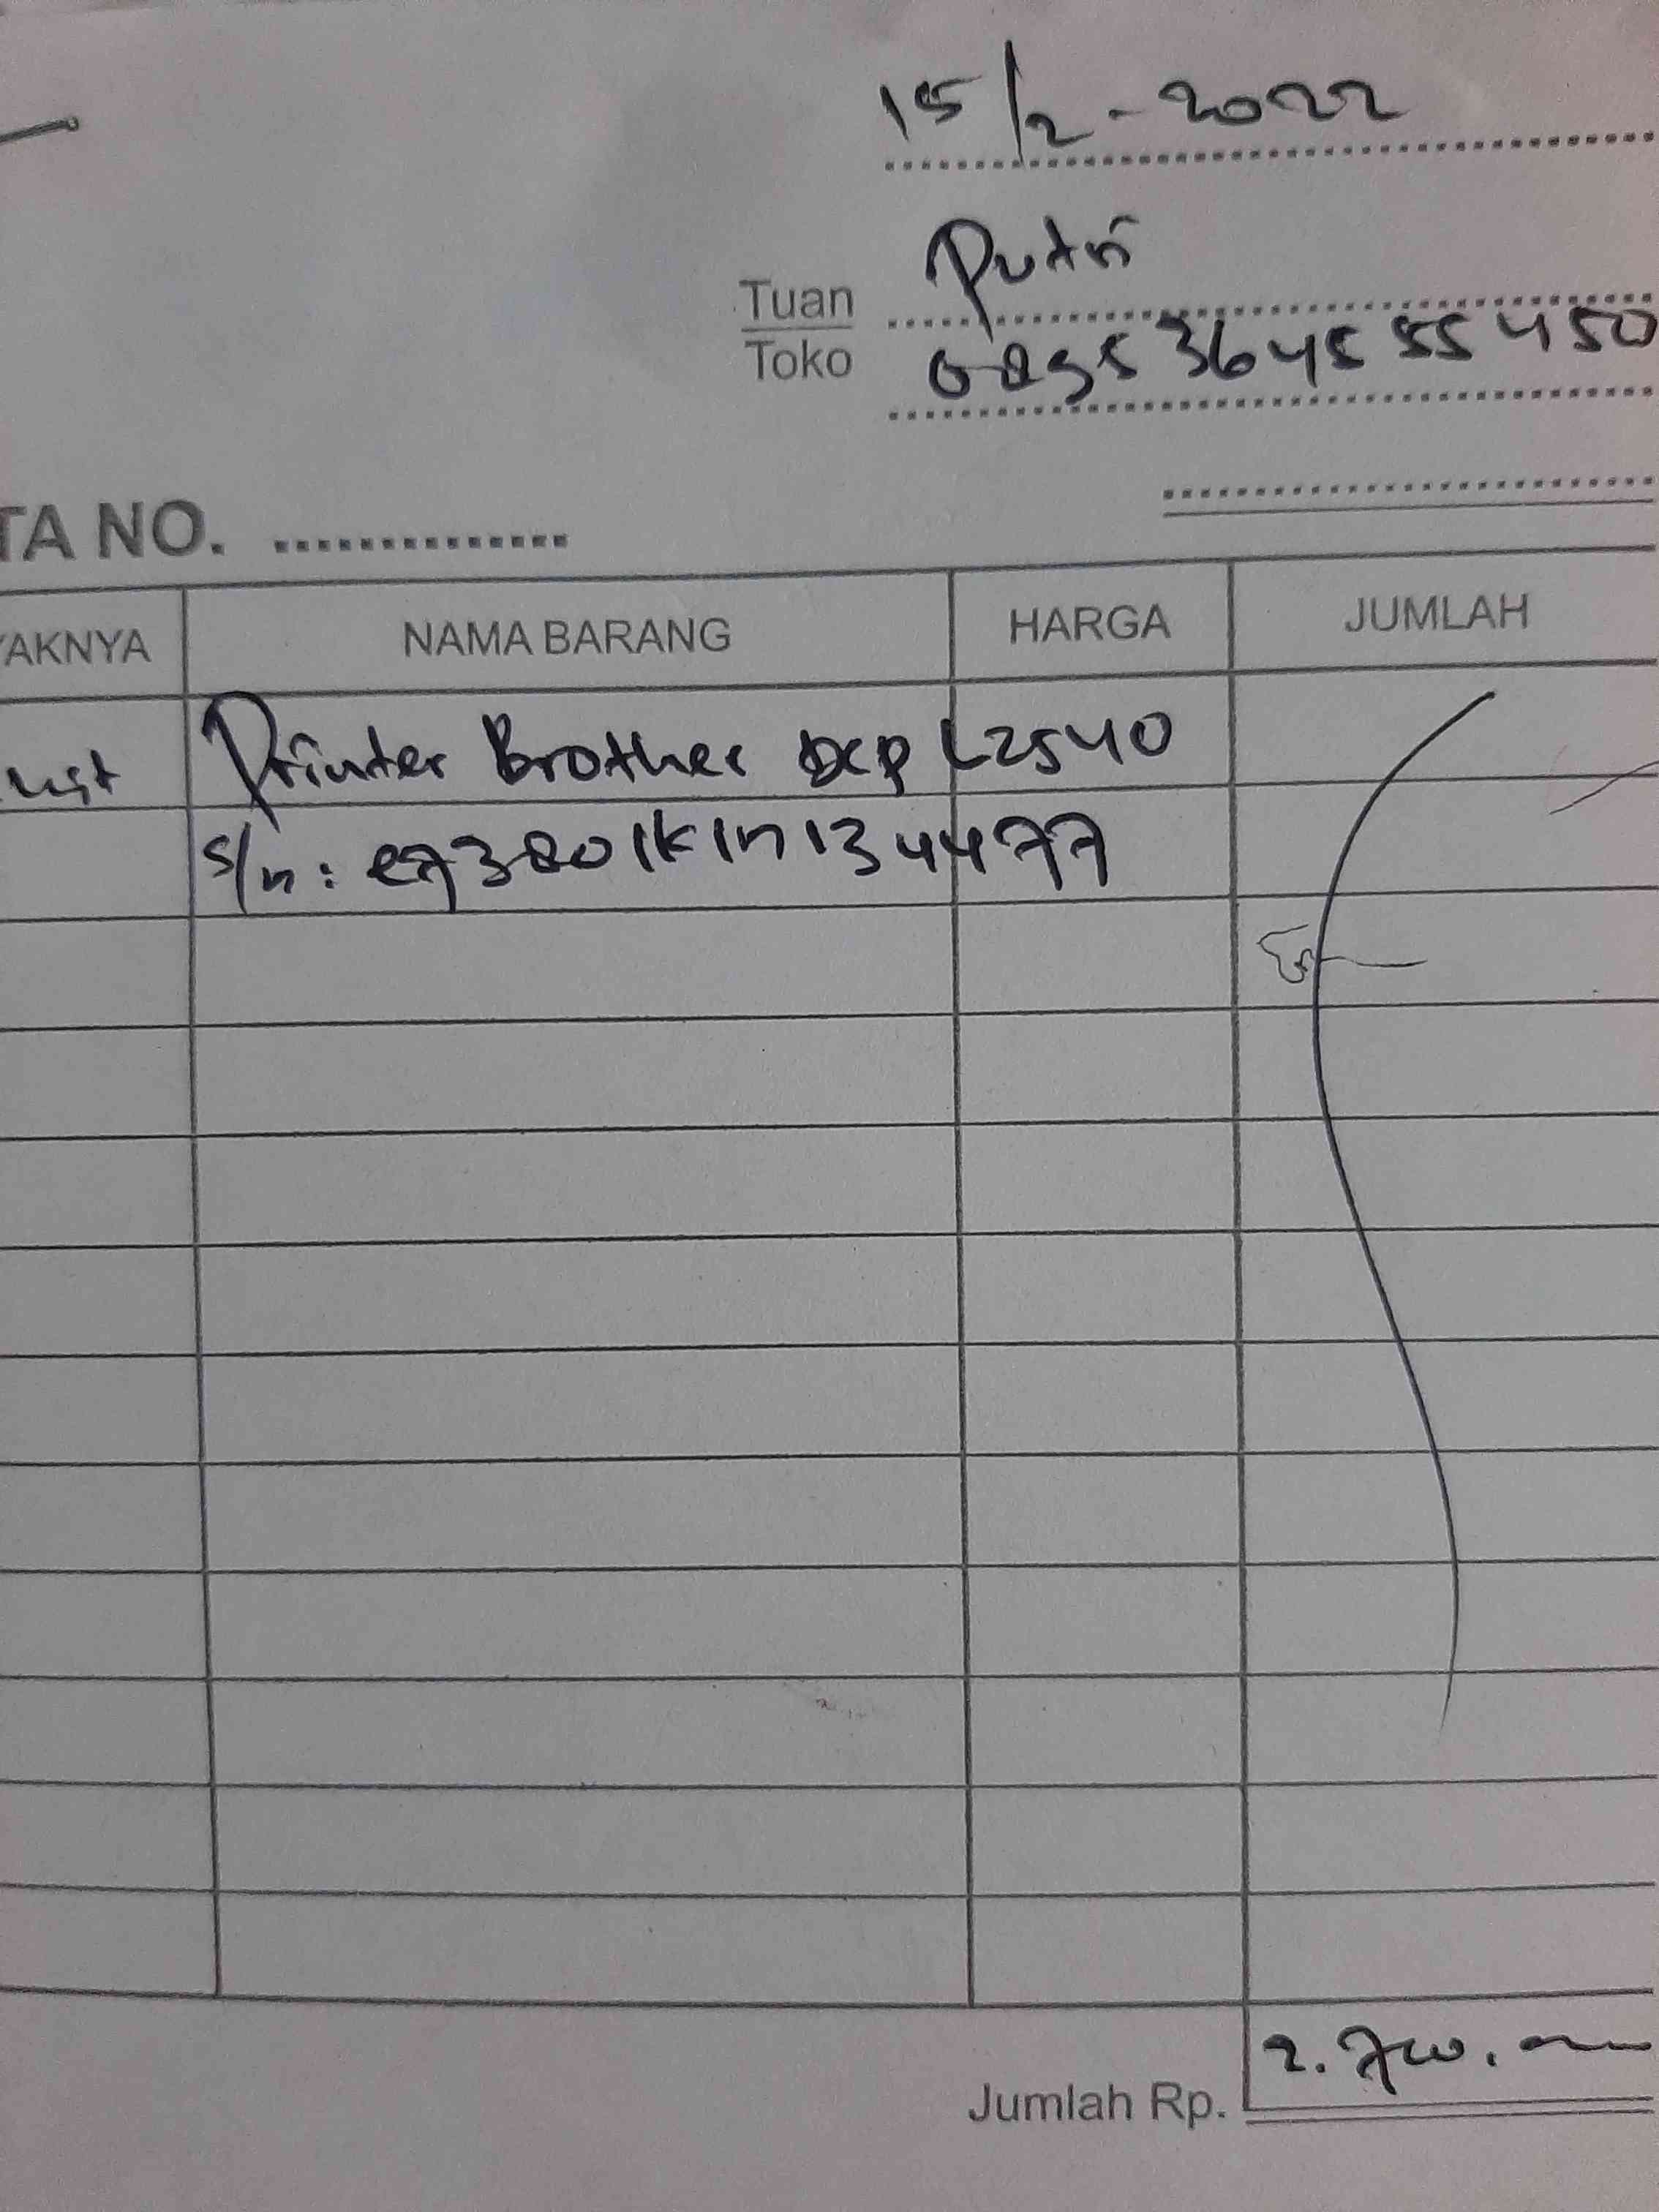 15/2-2022
Tuan Putri
Toko 0895364555450
TA NO. ...............
YAKNYA NAMA BARANG HARGA JUMLAH
unit Printer Brother DCP L2540
S/n: e73801K1n134477
Jumlah Rp. 2.700.000